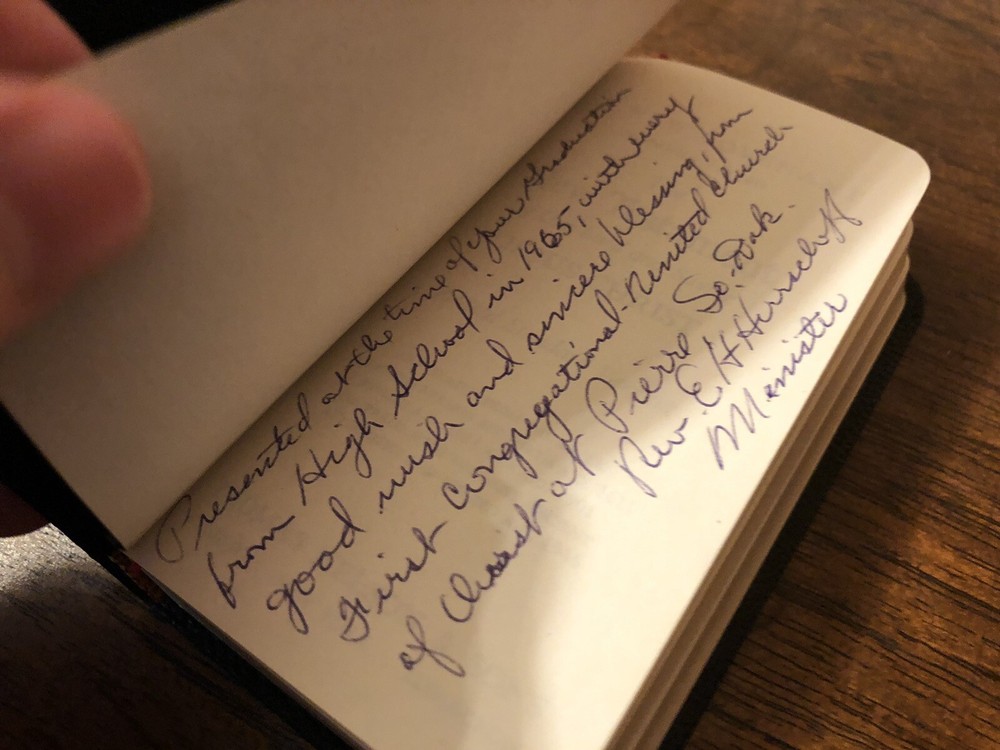 Presented at the time of your Graduation
from High School in 1965, with every
good wish and sincere blessing, from
First Congregational-United Church
of Christ at Pierre So. Dak.
Rev. E H
Minister